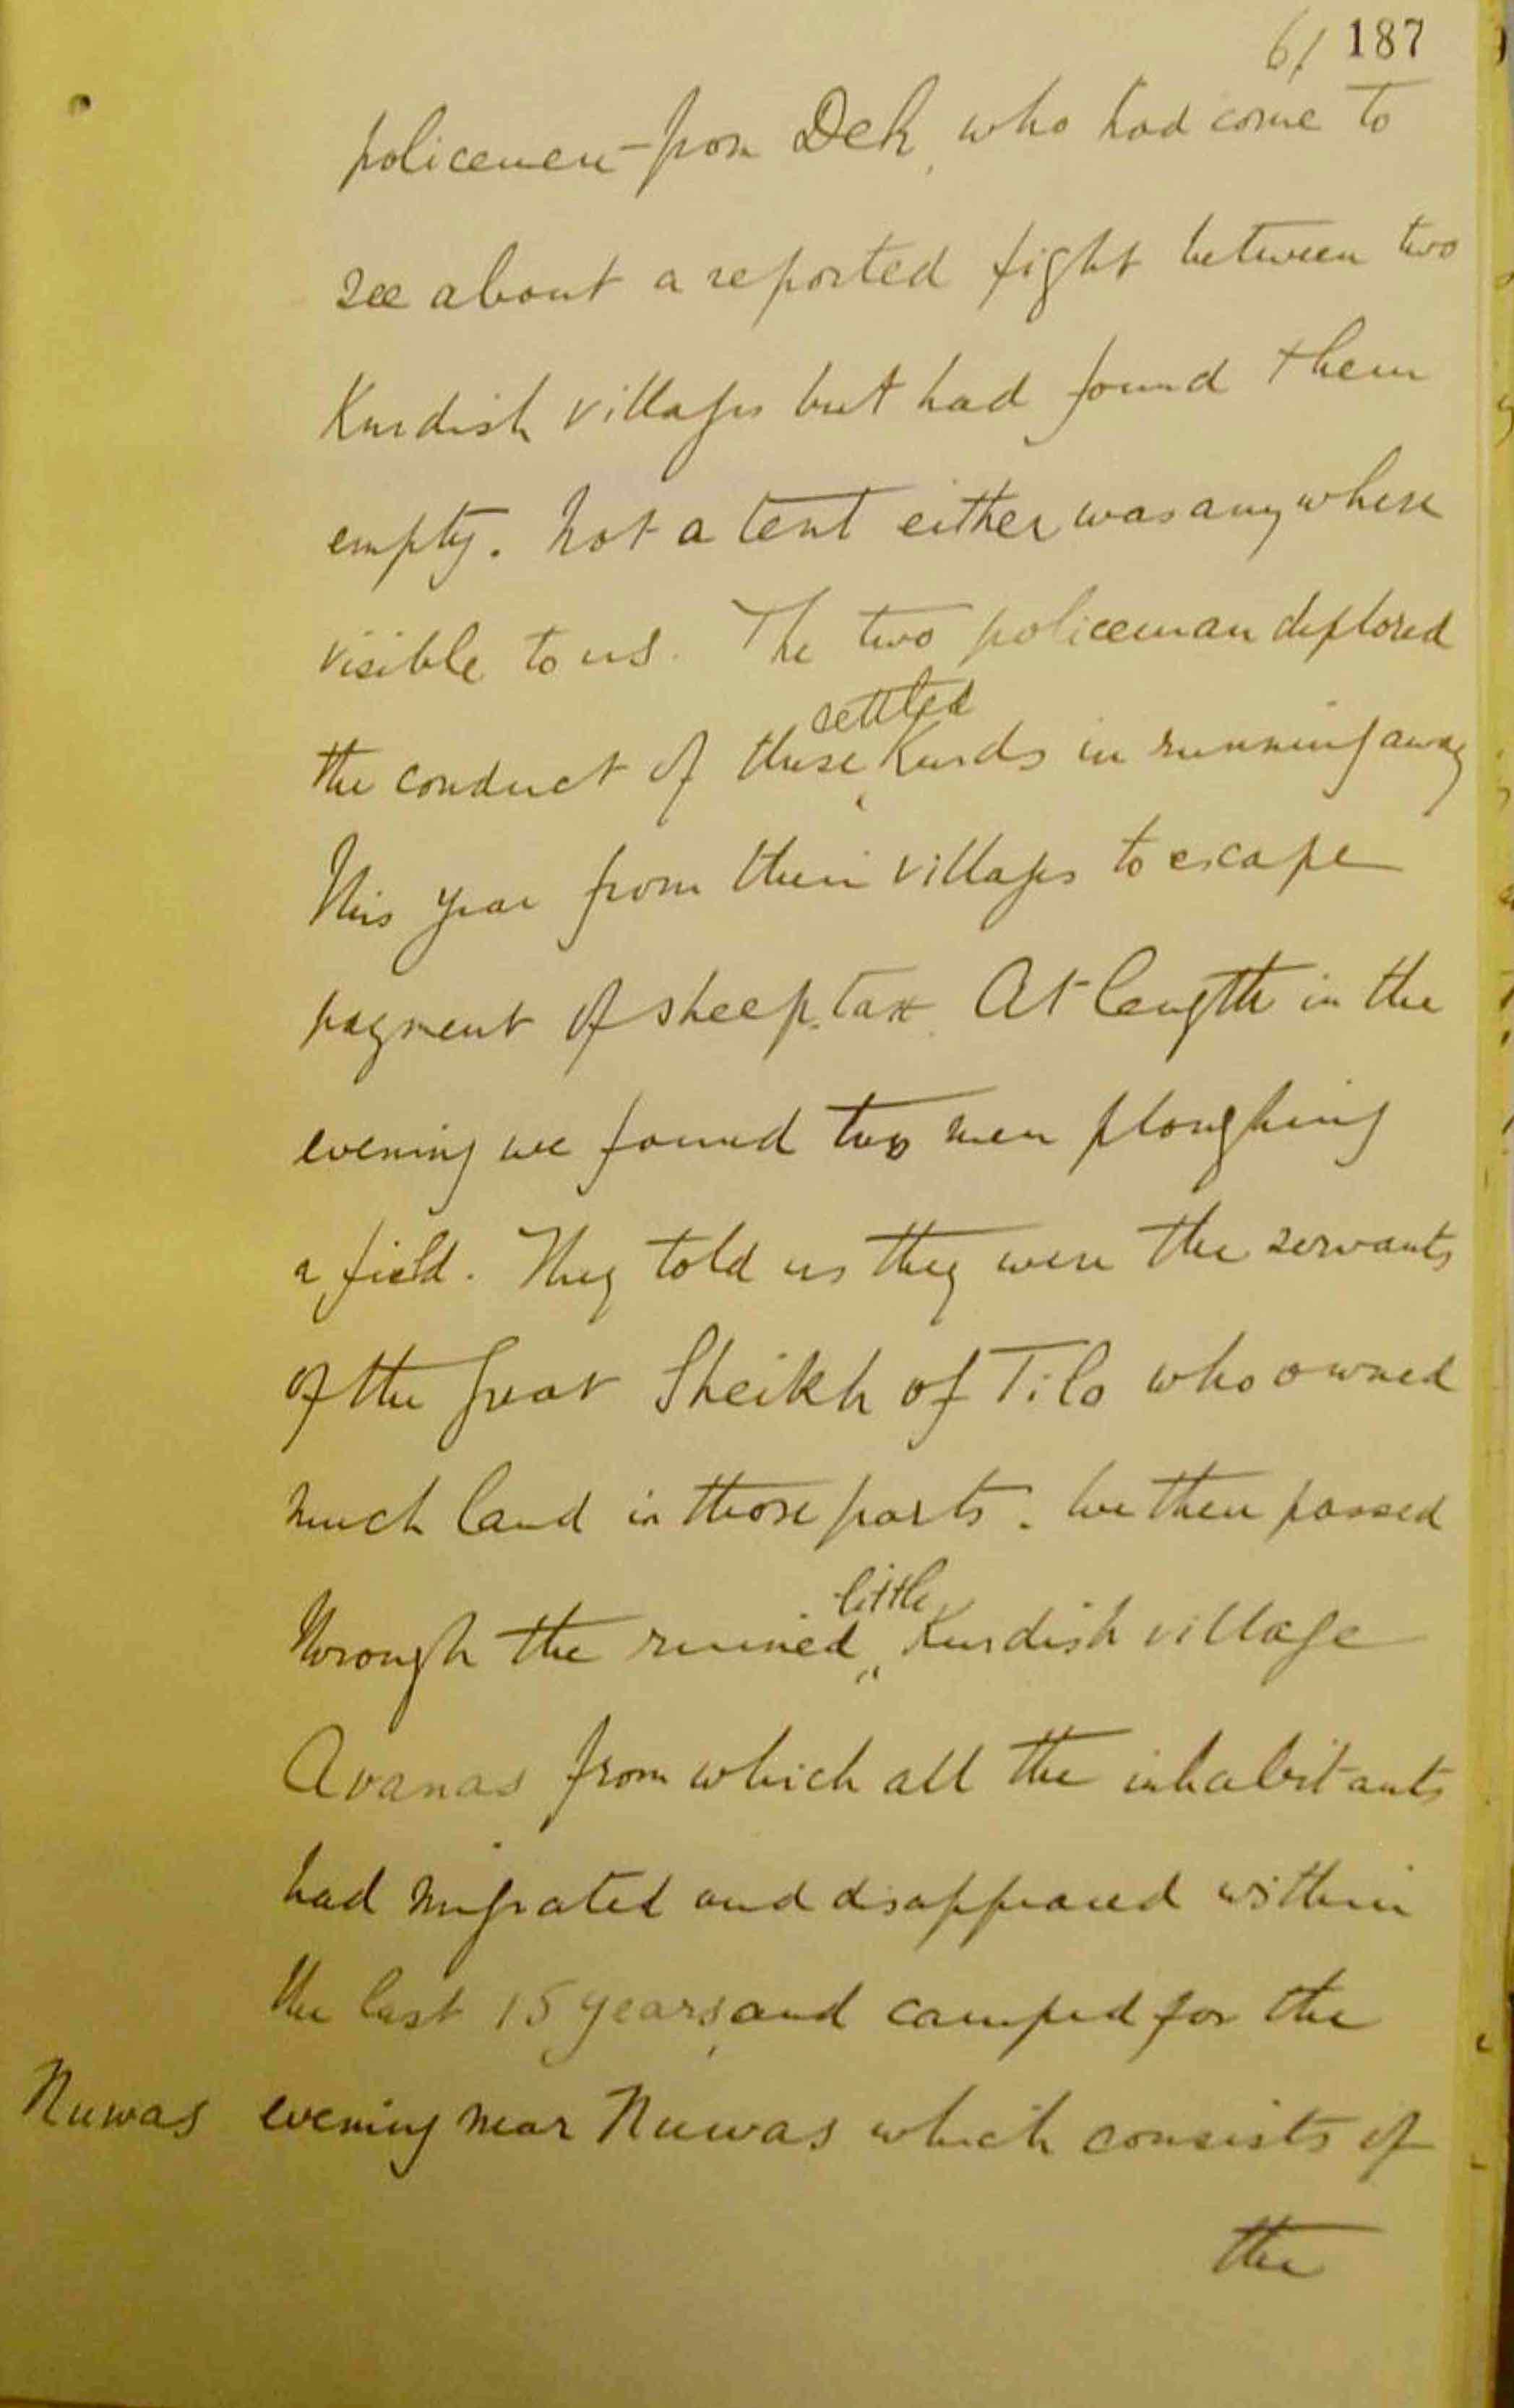 61 187
policemen from Deh, who had come to
see about a reported fight between two
Kurdish villages but had found them
empty. Not a tent either was anywhere
visible to us. The two policeman deplored
settled
the conduct of these Kurds in running away
this year from their villages to escape
payment of sheep tax. At length in the
evening we found two men ploughing
a field. They told us they were the servants
of the great Sheikh of Tilo who owned
much land in those parts. We then passed
little
through the ruined Kurdish village
Avanas from which all the inhabitants
had migrated and disappeared within
the last 15 years, and camped for the
Nuwas evening near Nuwas which consists of
the